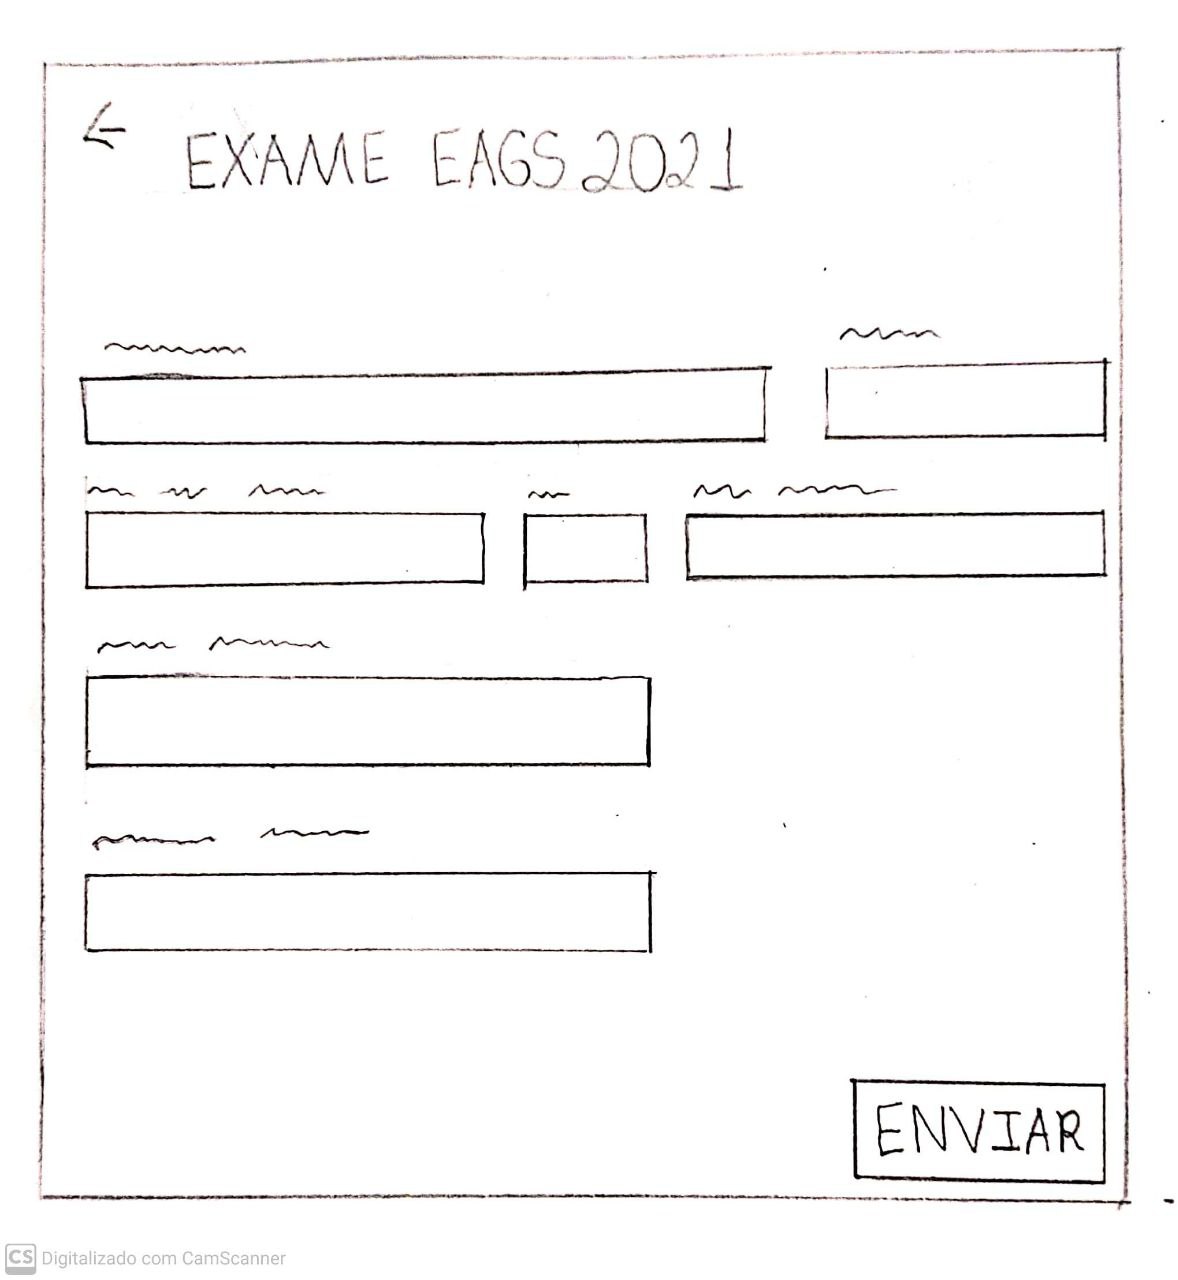 ← EXAME EAGS 2021
ENVIAR
CS Digitalizado com CamScanner